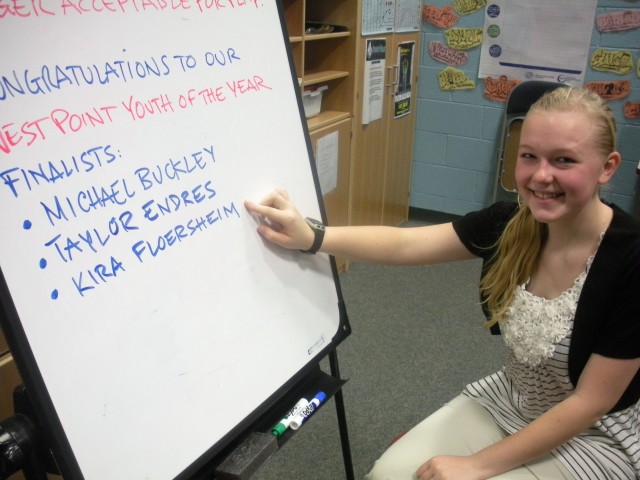 ACCEPTABLE FOR
CONGRATULATIONS TO OUR
WEST POINT YOUTH OF THE YEAR
FINALISTS:
• MICHAEL BUCKLEY
• TAYLOR ENDRES
• KIRA FLOERSHEIM